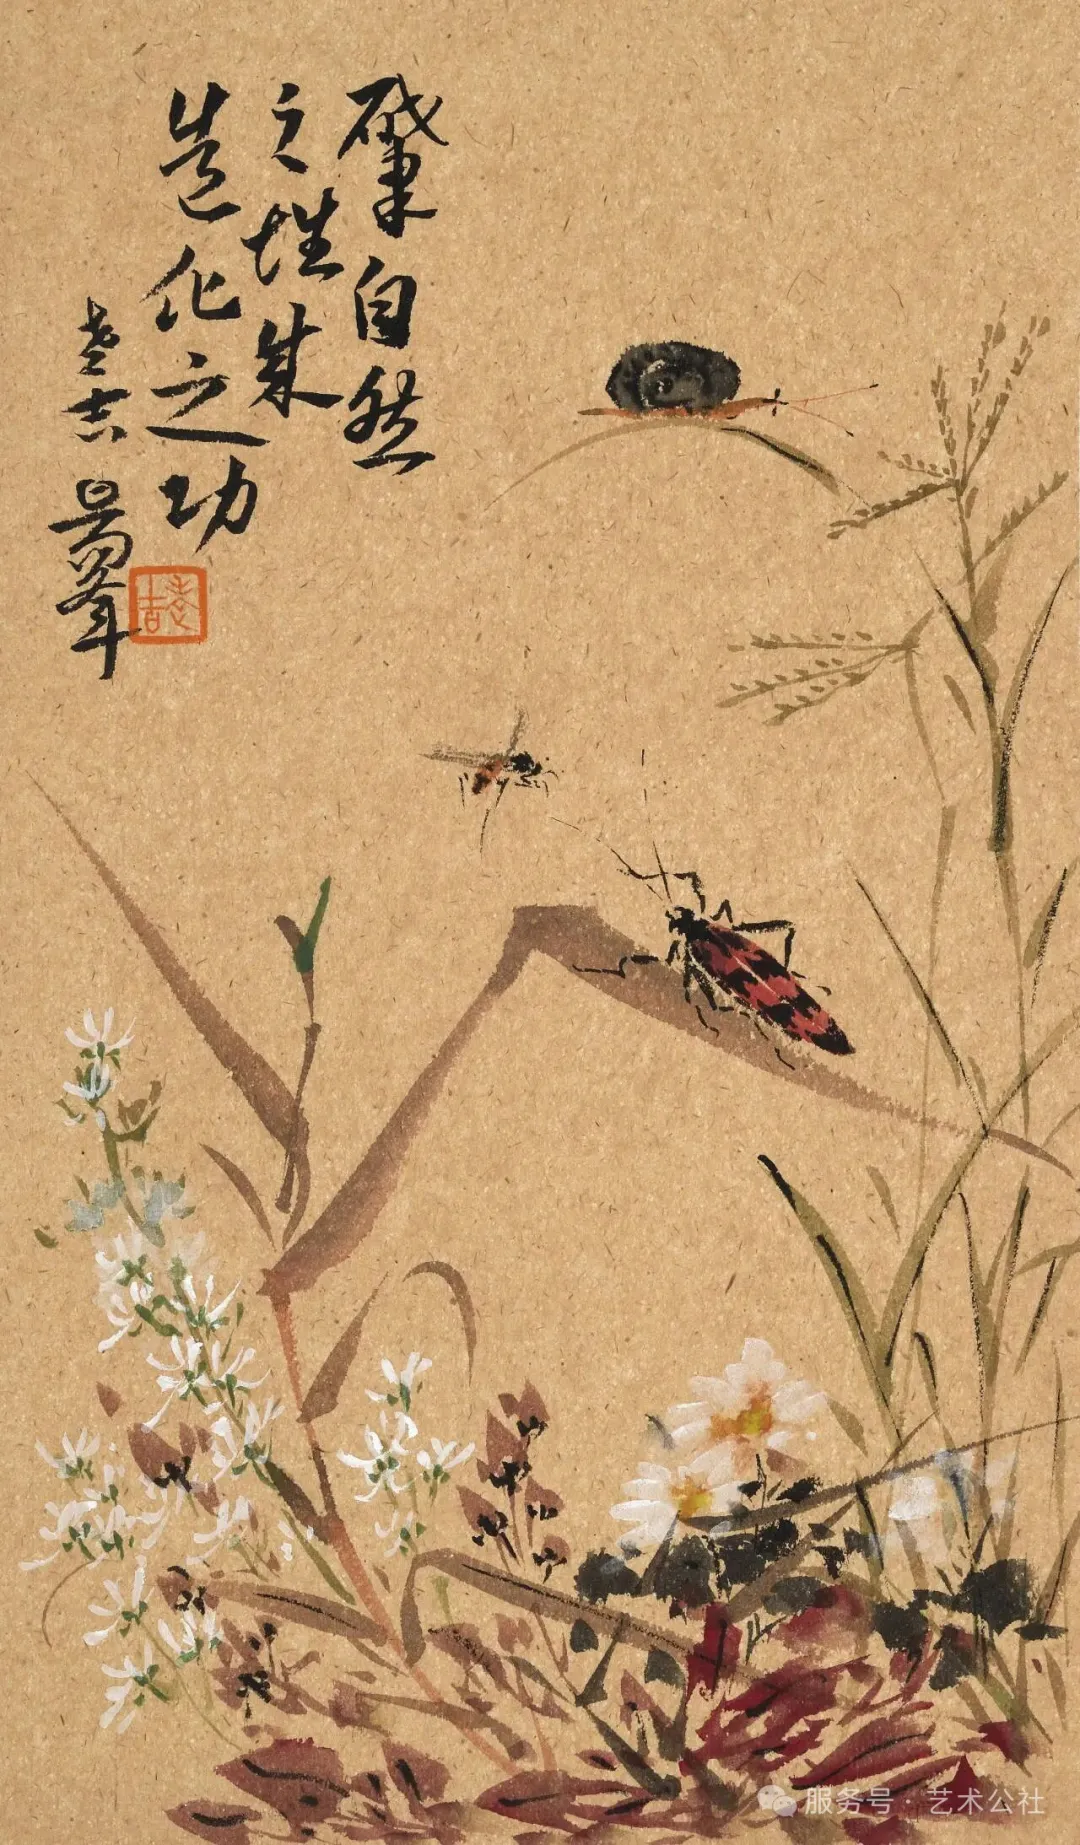 肇自然
之性成
造化之功
吉
服务号 · 艺术公社